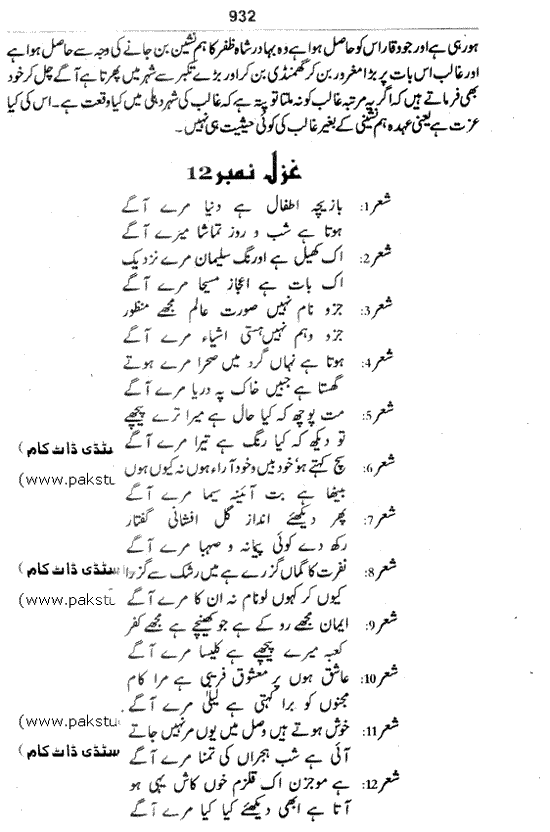 932
ہو رہی ہے اور جو وقار اس کو حاصل ہوا ہے وہ بہادر شاہ ظفر کا ہم نشین بن جانے کی وجہ سے حاصل ہوا ہے
اور غالب اس بات پر بڑا مغرور بن کر گھمنڈی بن کر اور بڑے تکبر سے شہر میں پھرتا ہے آگے چل کر خود
بھی فرماتے ہیں کہ اگر یہ مرتبہ غالب کو نہ ملتا تو پتہ ہے کہ غالب کی شہر دہلی میں کیا وقعت ہے۔ اس کی کیا
عزت ہے یعنی عہدہ ہم نشینی کے بغیر غالب کی کوئی حیثیت ہی نہیں۔
غزل نمبر 12
شعر 1: بازیچہ اطفال ہے دنیا مرے آگے
ہوتا ہے شب و روز تماشا میرے آگے
شعر 2: اک کھیل ہے اورنگ سلیمان مرے نزدیک
اک بات ہے اعجاز مسیحا مرے آگے
شعر 3: جزو نام نہیں صورت عالم مجھے منظور
جزو وہم نہیں ہستی اشیاء مرے آگے
شعر 4: ہوتا ہے نہاں گرد میں صحرا مرے ہوتے
گھستا ہے جبیں خاک پہ دریا مرے آگے
شعر 5: مت پوچھ کہ کیا حال ہے میرا ترے پیچھے
تو دیکھ کہ کیا رنگ ہے تیرا مرے آگے
سٹڈی ڈاٹ کام)
شعر 6: سچ کہتے ہو خود بین و خود آراء ہوں نہ کیوں ہوں
(www.pakstu
بیٹھا ہے بت آئینہ سیما مرے آگے
شعر 7: پھر دیکھئے انداز گل افشانی گفتار
رکھ دے کوئی پیمانہ و صہبا مرے آگے
شعر 8: نفرت کا گماں گزرے ہے میں رشک سے گزرا
سٹڈی ڈاٹ کام)
کیوں کر کہوں لو نام نہ ان کا مرے آگے
(www.pakstu
شعر 9: ایمان مجھے روکے ہے جو کھینچے ہے مجھے کفر
کعبہ میرے پیچھے ہے کلیسا مرے آگے
شعر 10: عاشق ہوں پر معشوق فریبی ہے مرا کام
مجنوں کو برا کہتی ہے لیلیٰ مرے آگے
شعر 11: خوش ہوتے ہیں وصل میں یوں مر نہیں جاتے
(www.pakstu
آئی ہے شب ہجراں کی تمنا مرے آگے
سٹڈی ڈاٹ کام)
شعر 12: ہے موجزن اک قلزم خوں کاش یہی ہو
آتا ہے ابھی دیکھئے کیا کیا مرے آگے